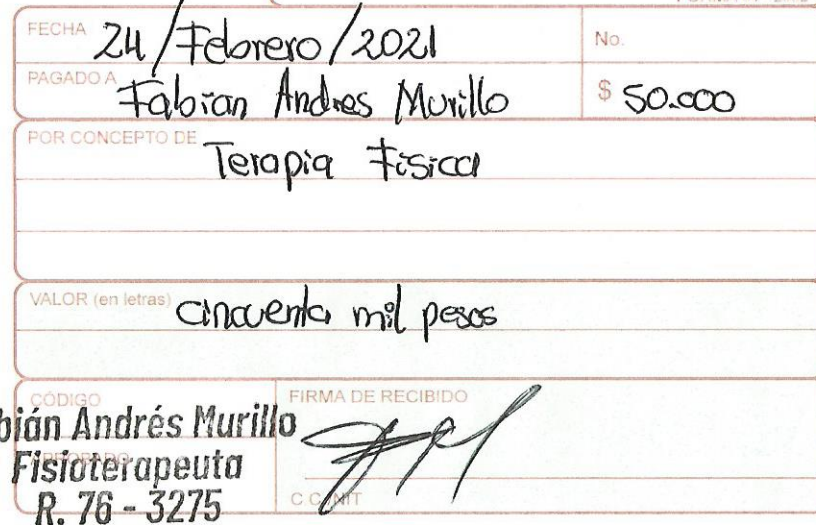 FECHA 24/Febrero/2021
No.
PAGADO A Fabian Andres Murillo
$ 50.000
POR CONCEPTO DE Terapia Fisica
VALOR (en letras) cincuenta mil pesos
CÓDIGO
FIRMA DE RECIBIDO
bián Andrés Murillo
APROBADO
Fisioterapeuta
R. 76 - 3275
C.C./NIT